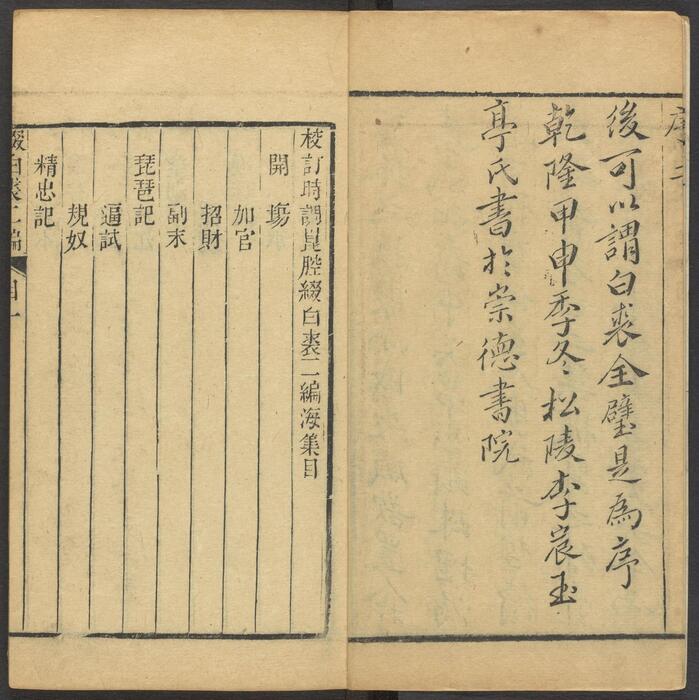 後可以謂白裘全璧是為序
乾隆甲申季冬松陵李宸玉
亭氏書於崇德書院
校訂時調崑腔綴白裘二編海集目
開場
加官
招財
副末
琵琶記
逼試
規奴
精忠記
綴白裘二編 目一